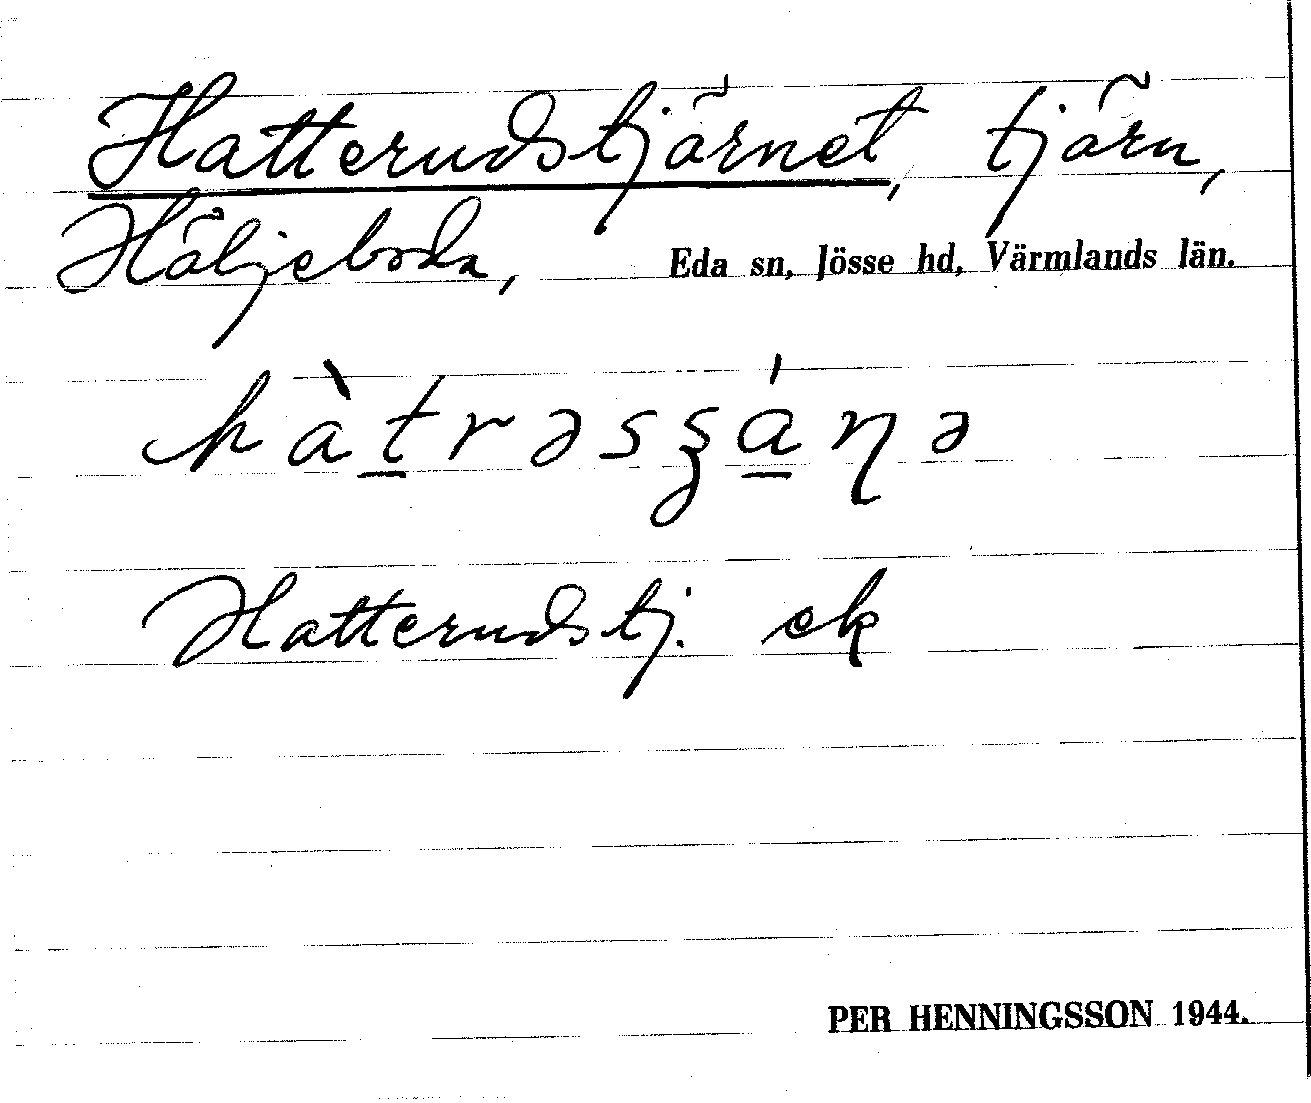 Hatterudstjärnet, tjärn,
Häljeboda, Eda sn, Jösse hd, Värmlands län.
hàt̲rəsʂá̲ɳə
Hatterudstj. ek
PER HENNINGSSON 1944.